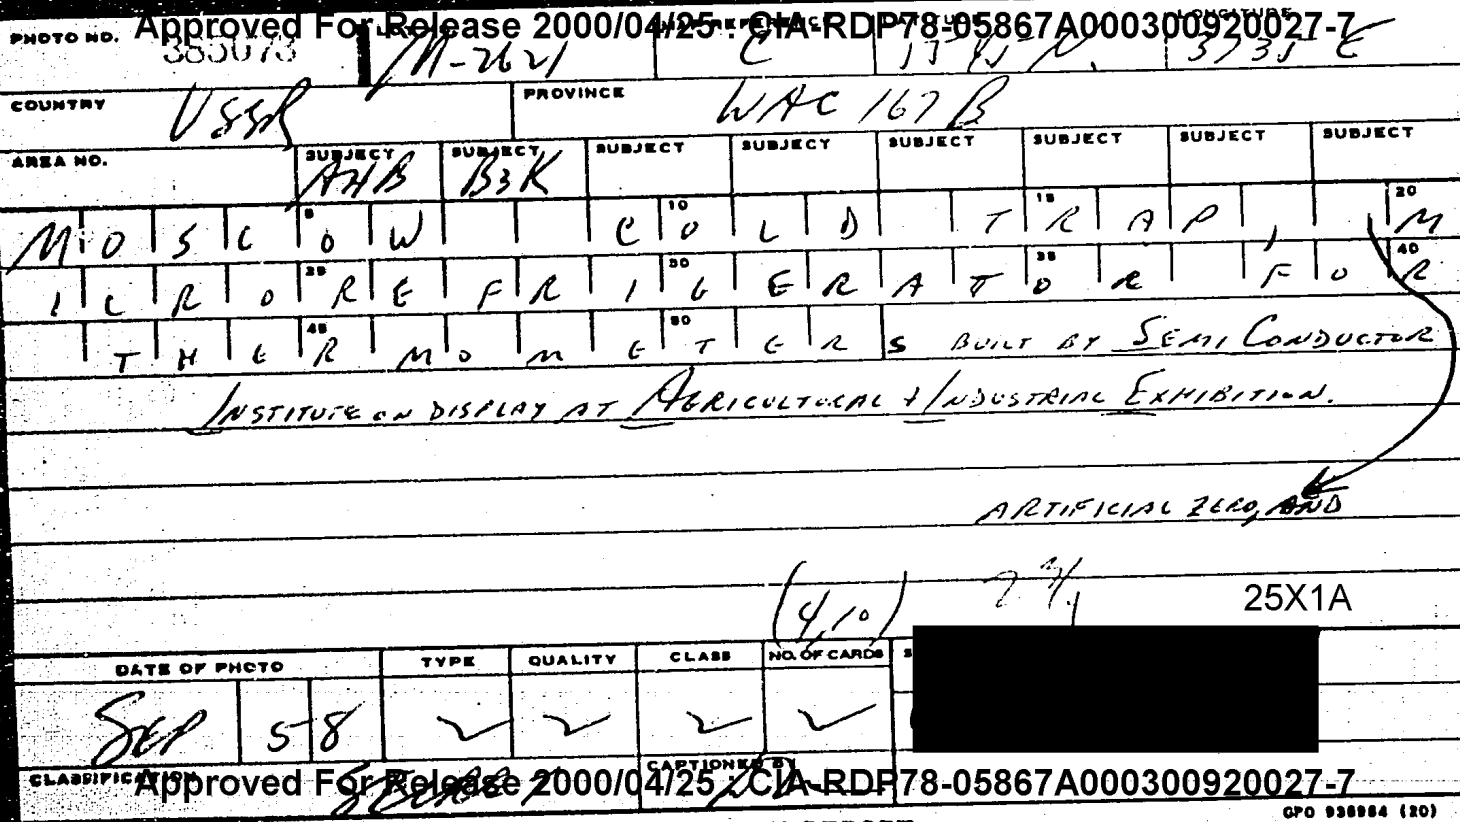 Approved For Release 2000/04/25 : CIA-RDP78-05867A000300920027-7
PHOTO NO. 383073 M-2621 C 55 45 N. 3735 E LONGITUDE
COUNTRY USSR PROVINCE WAC 167 B
AREA NO. SUBJECT AHB SUBJECT B3K SUBJECT SUBJECT SUBJECT SUBJECT SUBJECT SUBJECT
MOSCOW COLD TRAP, M
ICROREFRIGERATOR FOR
THERMOMETERS BUILT BY SEMI CONDUCTOR
INSTITUTE ON DISPLAY AT AGRICULTURAL + INDUSTRIAL EXHIBITION.
ARTIFICIAL ZERO, AND
(4,10) 25X1A
DATE OF PHOTO TYPE QUALITY CLASS NO. OF CARDS
SEP 58 ✓ ✓ ✓ ✓
CLASSIFICATION CAPTIONED BY
Approved For Release 2000/04/25 : CIA-RDP78-05867A000300920027-7
GPO 936984 (20)